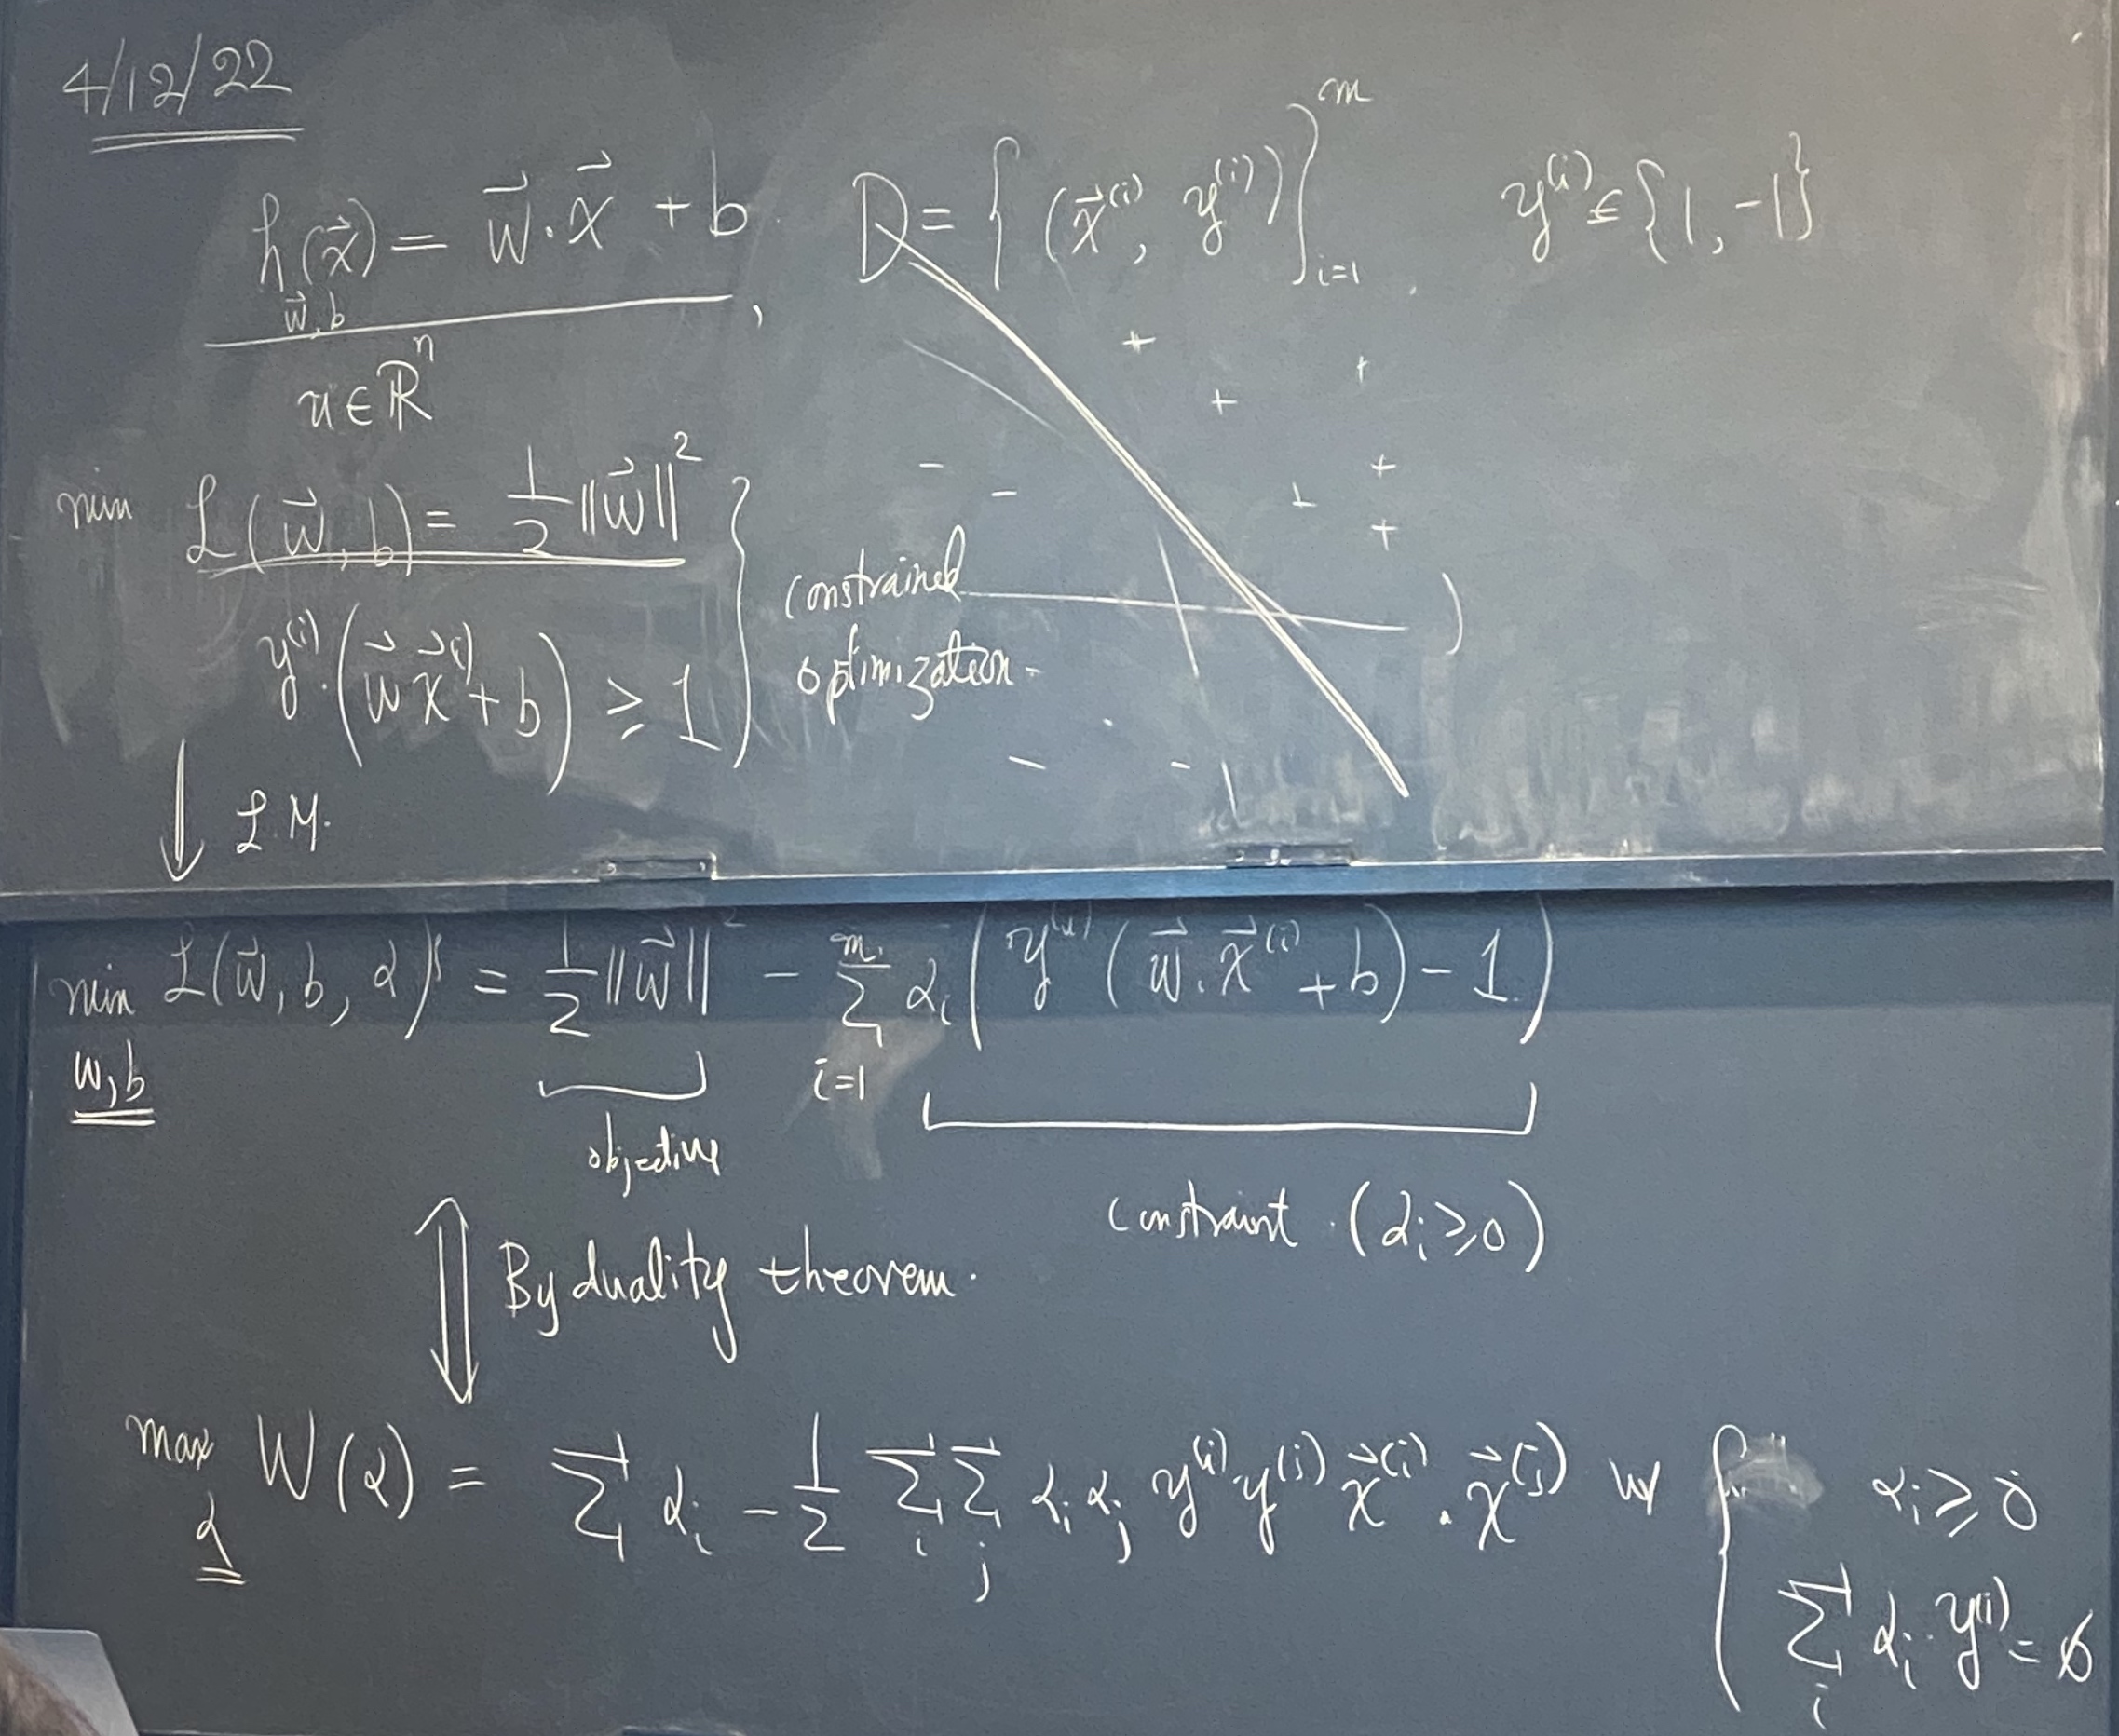 4/12/22
h_{\vec{w},b}(\vec{x}) = \vec{w}·\vec{x} + b, D = {(\vec{x}^{(i)}, y^{(i)})}_{i=1}^{m}. y^{(i)} ∈ {1, -1}
x ∈ ℝ^n
min ℒ(\vec{w}, b) = 1/2 ||\vec{w}||^2
y^{(i)}·(\vec{w} \vec{x}^{(i)} + b) ≥ 1 } constrained optimization.
↓ L.M.
min_{w,b} ℒ(\vec{w}, b, α) = 1/2 ||\vec{w}||^2 - Σ_{i=1}^{m} α_i (y^{(i)} (\vec{w}·\vec{x}^{(i)} + b) - 1)
objective
constraint (α_i ≥ 0)
⇕ By duality theorem.
max_α W(α) = Σ α_i - 1/2 Σ_i Σ_j α_i α_j y^{(i)} y^{(j)} \vec{x}^{(i)} · \vec{x}^{(j)} w/ { α_i ≥ 0
Σ_i α_i y^{(i)} = 0